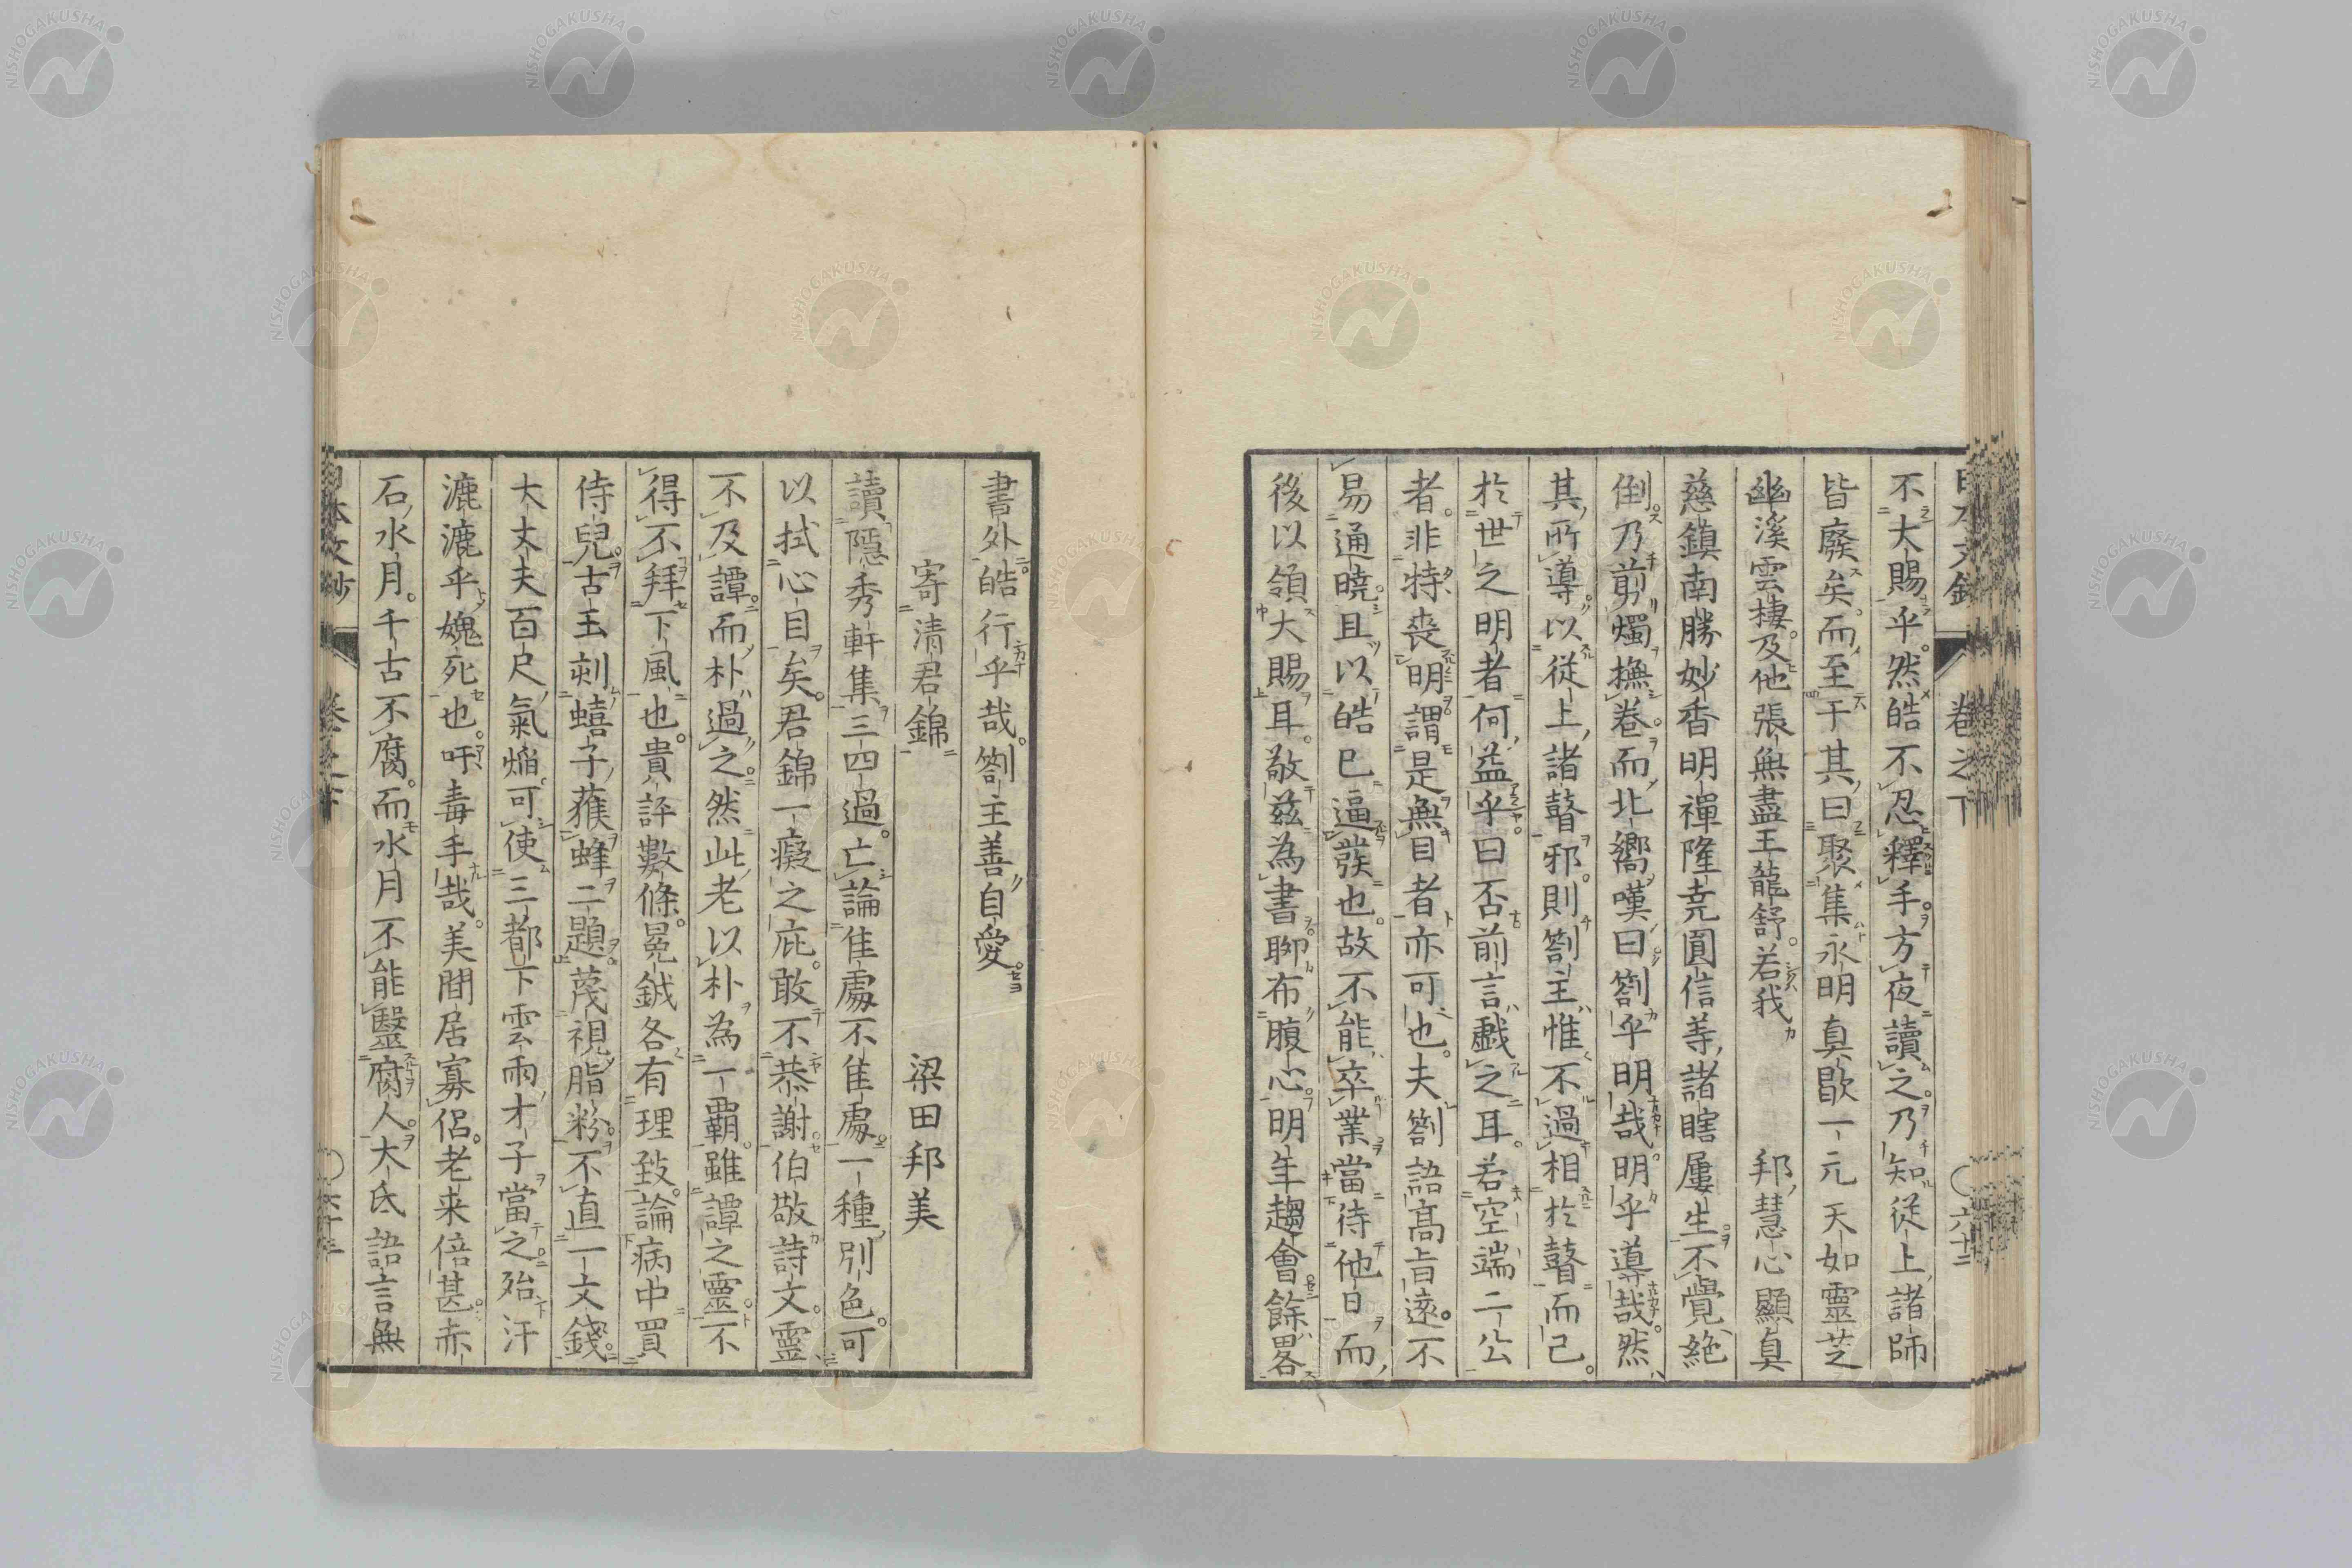 不大賜乎。然皓不忍釋手。方夜讀之。乃知從上諸師
皆廢矣。而至于其曰聚集永明真歇一元天如靈芝
幽溪雲棲。及他張無盡王龍舒。若我 邦慧心顯真
慈鎮南勝妙香明禪隆堯圓信等諸瞎屢生。不覺絕
倒。乃剪燭撫卷。而北嚮嘆曰劄乎明哉。明乎導哉。然
其所導。以從上諸瞽邪。則劄主惟不過相於瞽而已。
於世之明者何益乎。曰否前言戲之耳。若空端二公
者。非特喪明。謂是無目者亦可也。夫劄語高旨遠。不
易通曉。且以皓已逼發也。故不能卒業。當待他日而
後以領大賜耳。敬茲為書聊布腹心。明年趨會餘畧
書外。皓行乎哉。劄主善自愛。
寄清君錦 梁田邦美
讀隱秀軒集三四過。亡論佳處不佳處。一種別色。可
以拭心目矣。君錦一癡之庇。敢不恭謝。伯敬詩文。靈
不及譚。而朴過之。然此老以朴為一霸。雖譚之靈。不
得不拜下風也。貴評數條。冕鉞各有理致。論病中買
侍兒。古玉刻蟢子。蕉蜂二題。蔑視脂粉。不直一文錢。
大丈夫百尺氣焔。可使三都下雲雨才子當之。殆汗
漉漉乎媿死也。吁毒手哉。美閒居寡侶。老来倍甚。赤
石水月。千古不腐。而水月不能醫腐人。大氐語言無
卷之下
六十二